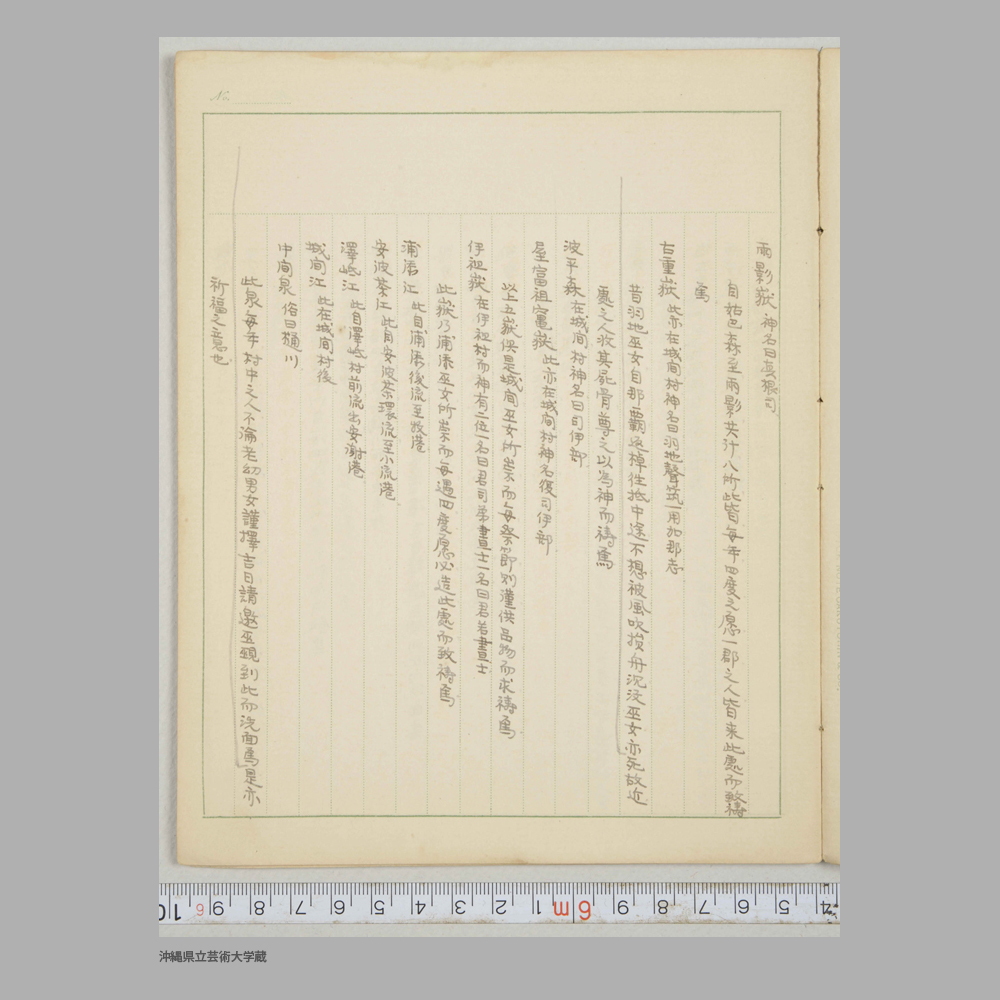 雨影嶽 神名曰真根司
自姑巴森至雨影共計八所此皆毎年四度之愿一郡之人皆来此處而致祷
焉
古重嶽 此亦在城間村神名曰羽地聲筑一用加那志
昔羽地巫女自那覇返棹往抵中途不想被風吹損舟沉没巫女亦死故近
處之人收其屍骨尊之以為神而祷焉
波平森 在城間村神名曰司伊部
屋富祖竃嶽 此亦在城間村神名復司伊部
以上五嶽倶是城間巫女所崇而毎祭節則謹供品物而求祷焉
伊祖嶽 在伊祖村而神有二位一名曰君司弟晝士一名曰君若晝士
此嶽乃浦添巫女所崇而毎遇四度愿必造此處而致祷焉
浦添江 此自浦添後流至牧港
安波茶江 此自安波茶環流至小流港
澤岻江 此自澤岻村前流出安謝港
城間江 此在城間村後
中間泉 俗曰樋川
此泉毎年村中之人不論老幼男女謹擇吉日請邀巫覡到此而洗面焉是亦
祈福之意也
No.
10 6 9 8 7 6 5 4 3 2 1 6m 9 8 7 6 5 4
沖縄県立芸術大学蔵